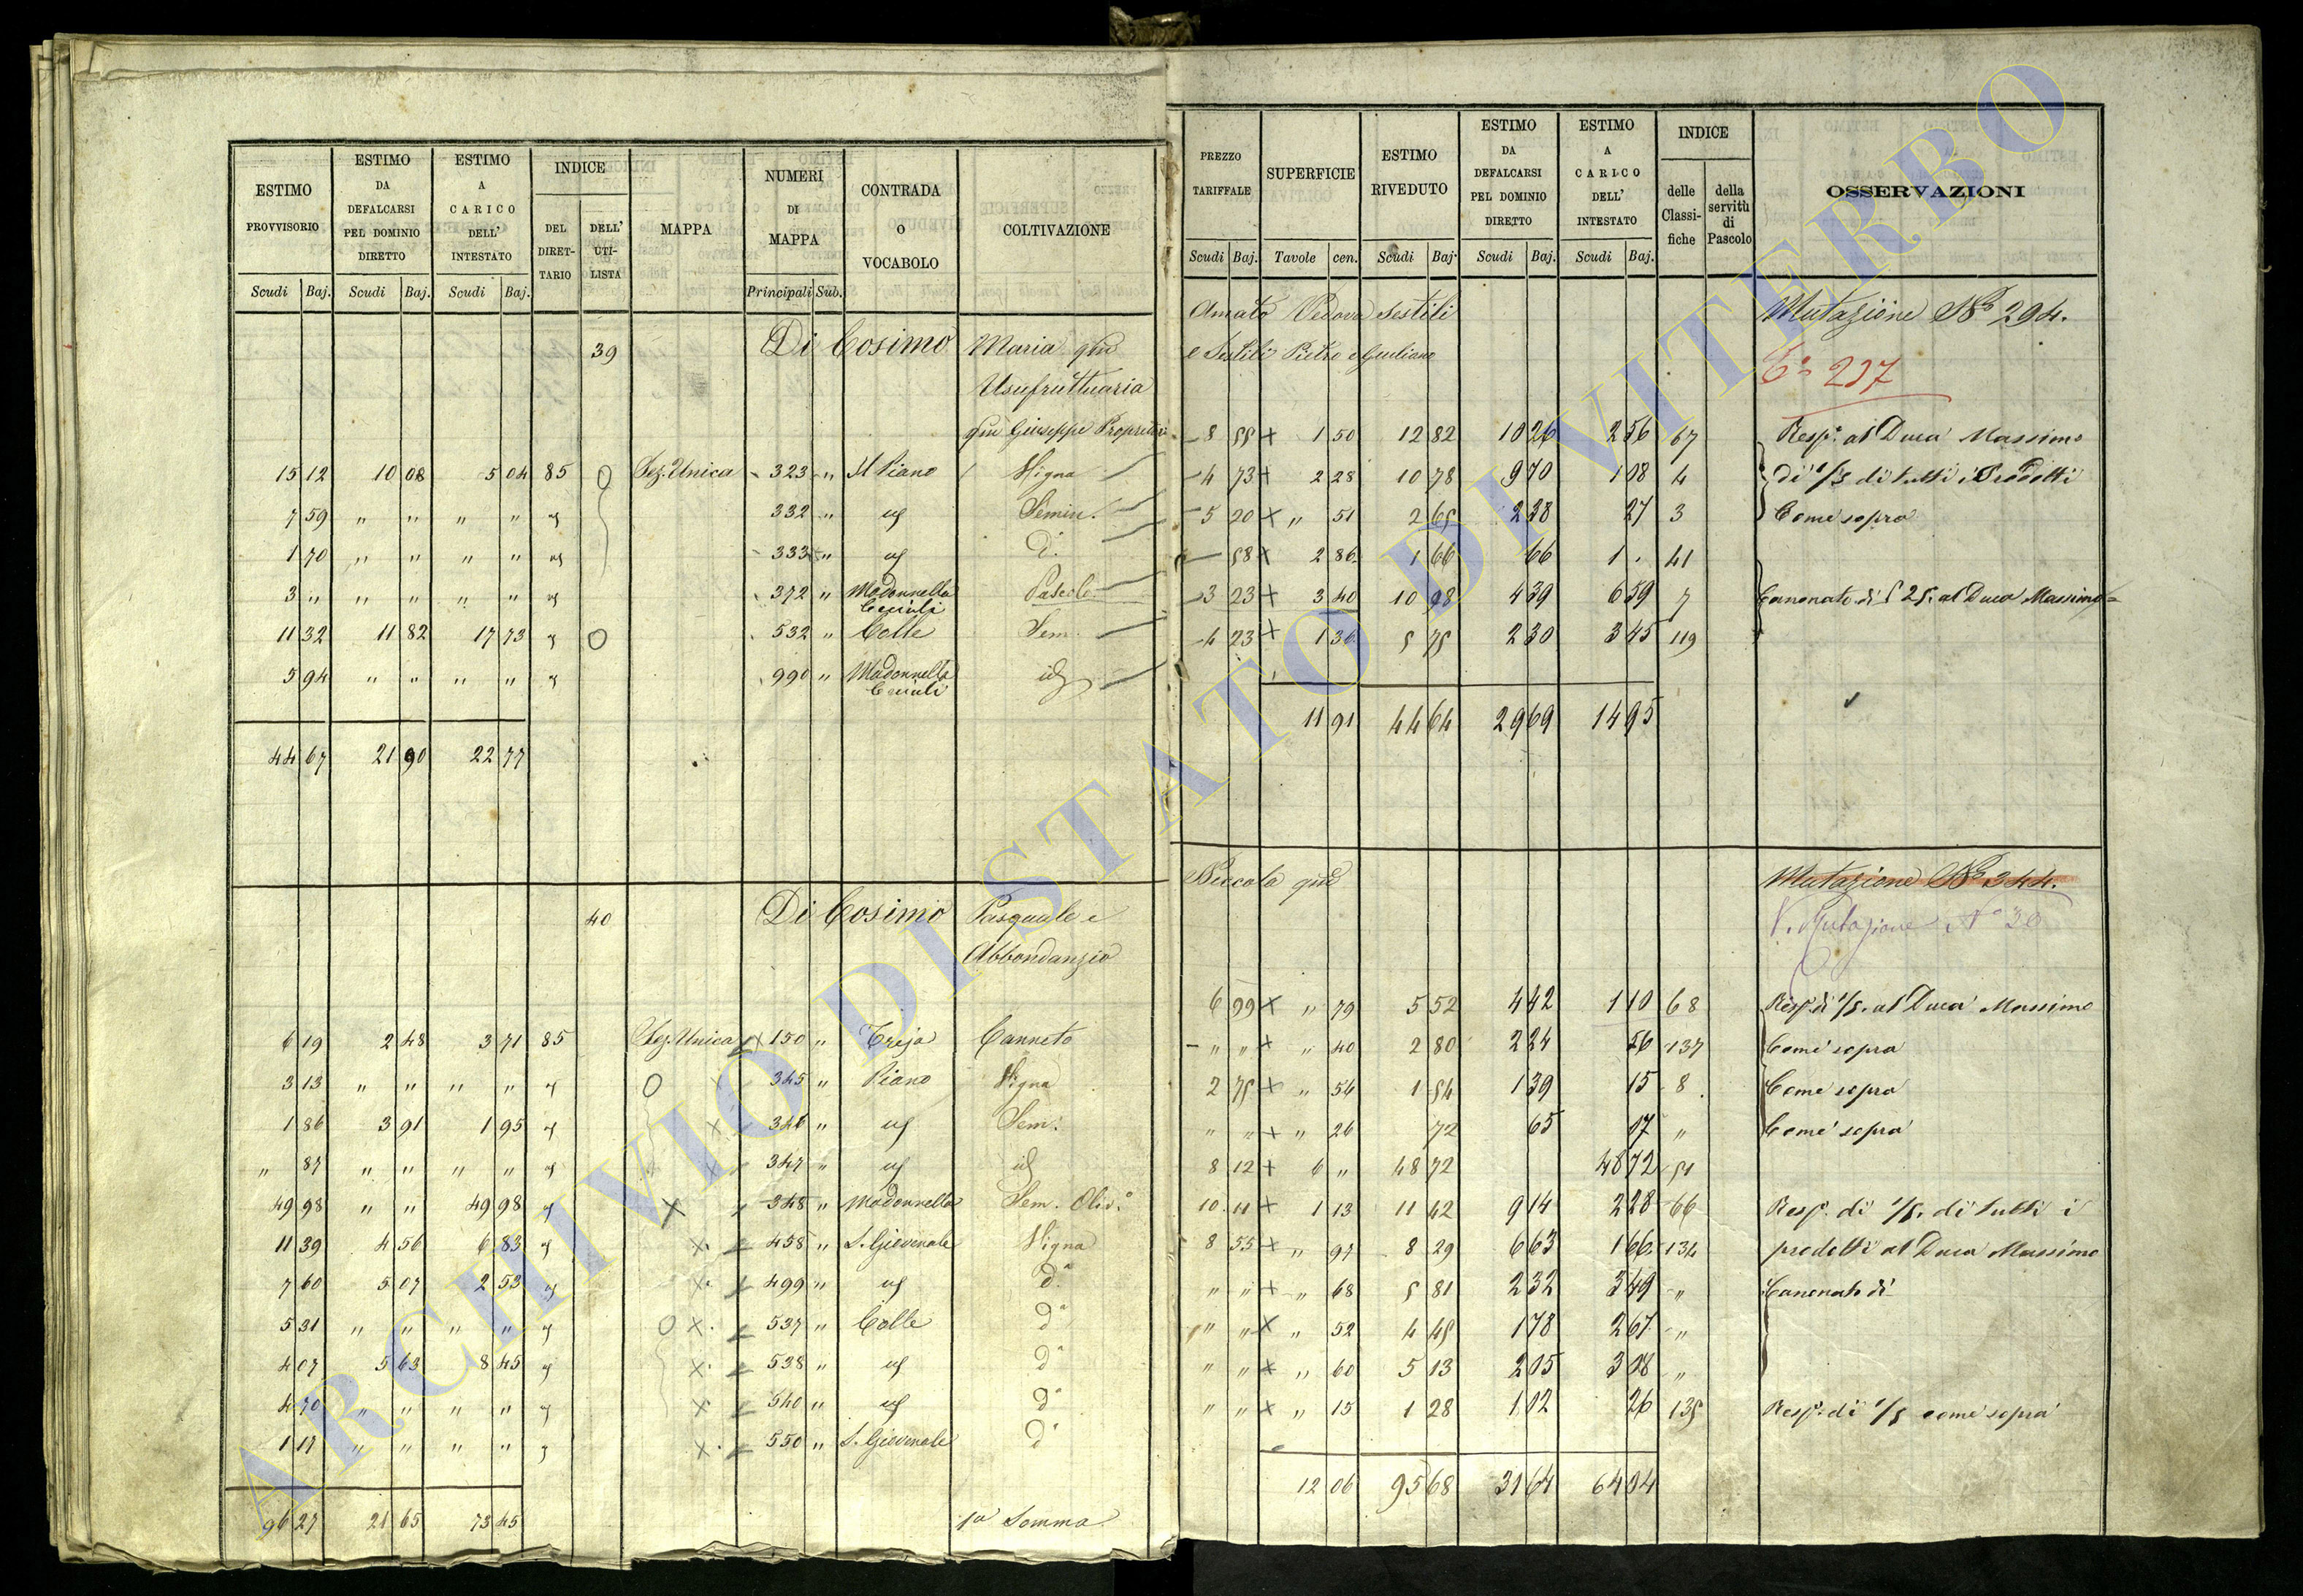 ESTIMO PROVVISORIO | ESTIMO DA DEFALCARSI PEL DOMINIO DIRETTO | ESTIMO A CARICO DELL' INTESTATO | INDICE DEL DIRETTARIO | DELL' UTILISTA | MAPPA | NUMERI DI MAPPA | CONTRADA O VOCABOLO | COLTIVAZIONE
Scudi Baj. | Scudi Baj. | Scudi Baj. | Principali Sub.
39 Di Cosimo Maria qm
Usufruttuaria
qm Giuseppe
15 12 10 08 5 04 85 Sez. Unica 323 " Il Piano Vigna
7 59 " " " " 332 " Semin.
1 70 " " " " 333 " d.
3 " " " " " 372 " Madonnella Pascolo
11 32 11 82 17 73 532 " Colle Sem.
5 94 " " " " 990 " Madonnella id
44 67 21 90 22 77
40 Di Cosimo Pasquale e
Abbondanzio
6 19 2 48 3 71 85 Sez. Unica 150 " Treja Canneto
3 13 " " " " 345 " Piano Vigna
1 86 3 91 1 95 346 " Sem.
" 87 " " " " 347 " id
49 98 " " 49 98 348 " Madonnella Sem. Oliv.°
11 39 4 56 6 83 458 " S. Giovenale Vigna
7 60 5 07 2 53 499 " d.a
5 31 " " " " 537 " Colle d.a
4 07 5 63 8 45 538 " d.a
4 70 " " " " 540 " d.a
1 17 " " " " 550 " S. Giovenale d.a
96 27 21 65 73 45 1a Somma
PREZZO TARIFFALE | SUPERFICIE | ESTIMO RIVEDUTO | ESTIMO DA DEFALCARSI PEL DOMINIO DIRETTO | ESTIMO A CARICO DELL' INTESTATO | INDICE delle Classifiche | della servitù di Pascolo | OSSERVAZIONI
Scudi Baj. | Tavole cen. | Scudi Baj. | Scudi Baj. | Scudi Baj.
Amato Vedova Sestili Mutazione No 294.
e Sestili Pietro e Giuliano
237
8 55 1 50 12 82 10 26 2 56 67 Resp. al Duca Massimo
4 73 2 28 10 78 9 70 1 08 4 di 1/5 di tutti i Prodotti
5 20 " 51 2 65 2 38 27 3 Come sopra
58 2 86 1 66 66 1 . 41
3 23 3 40 10 98 4 39 6 59 7 Canonato di 25. al Duca Massimo
4 23 1 36 5 75 2 30 3 45 119
11 91 44 64 29 69 14 95
Niccola qm Mutazione No 344.
V. Mutazione No 30
6 99 " 79 5 52 4 42 1 10 68 Resp. di 1/5. al Duca Massimo
" " " 40 2 80 2 24 56 137 Come sopra
2 75 " 56 1 54 1 39 15 8 Come sopra
" " " 26 72 65 07 " Come sopra
8 12 6 " 48 72 48 72 51
10 11 1 13 11 42 9 14 2 28 66 Resp. di 1/5. di tutti i
8 55 " 97 8 29 6 63 1 66 134 prodotti al Duca Massimo
" " " 68 5 81 2 32 3 49 " Canonato di
" " " 52 4 45 1 78 2 67 "
" " " 60 5 13 2 05 3 08 "
" " " 15 1 28 1 02 26 135 Resp. di 1/5 come sopra
12 06 95 68 31 64 64 04
ARCHIVIO DI STATO DI VITERBO